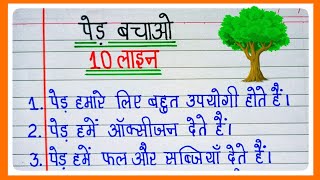 पेड़ बचाओ
10 लाइन
1. पेड़ हमारे लिए बहुत उपयोगी होते हैं।
2. पेड़ हमें ऑक्सीजन देते हैं।
3. पेड़ हमें फल और सब्जियाँ देते हैं।